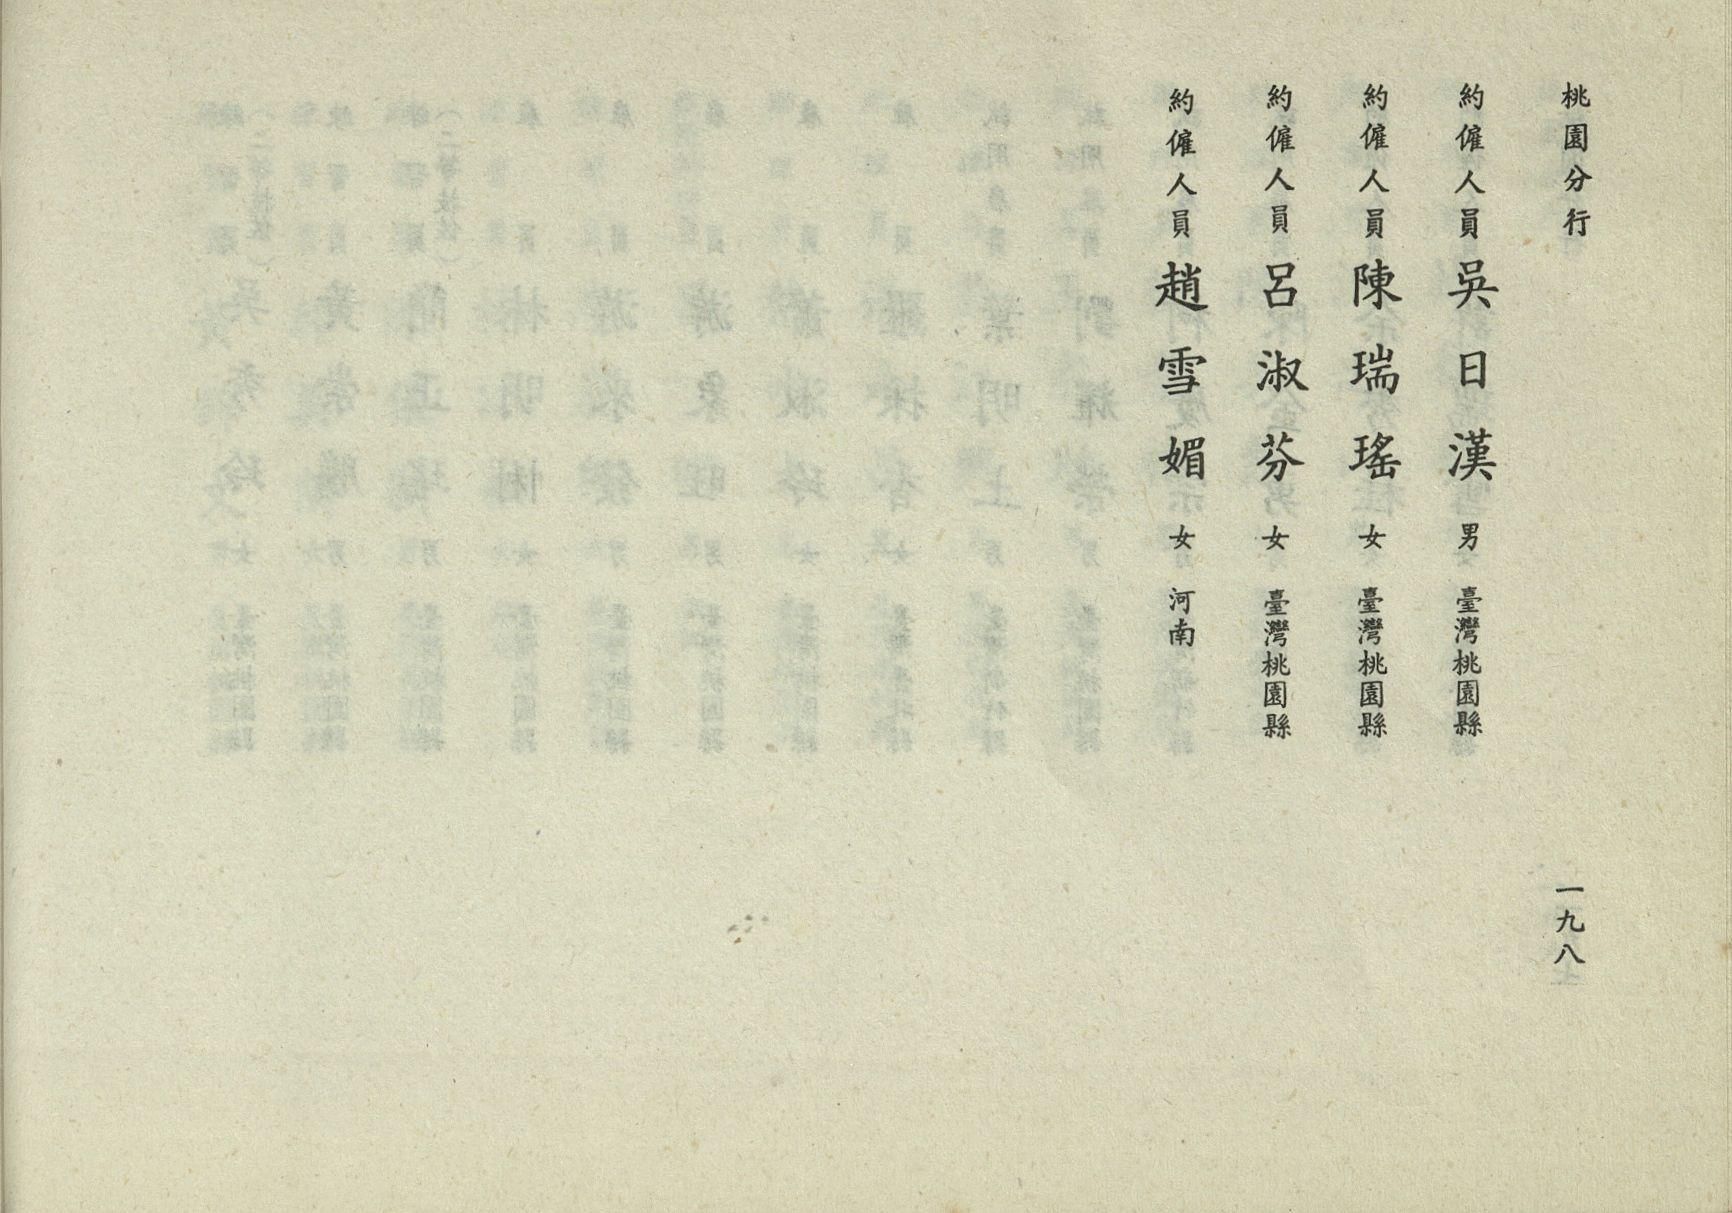 桃園分行 一九八
約僱人員 吳日漢 男 臺灣桃園縣
約僱人員 陳瑞瑤 女 臺灣桃園縣
約僱人員 呂淑芬 女 臺灣桃園縣
約僱人員 趙雪媚 女 河南